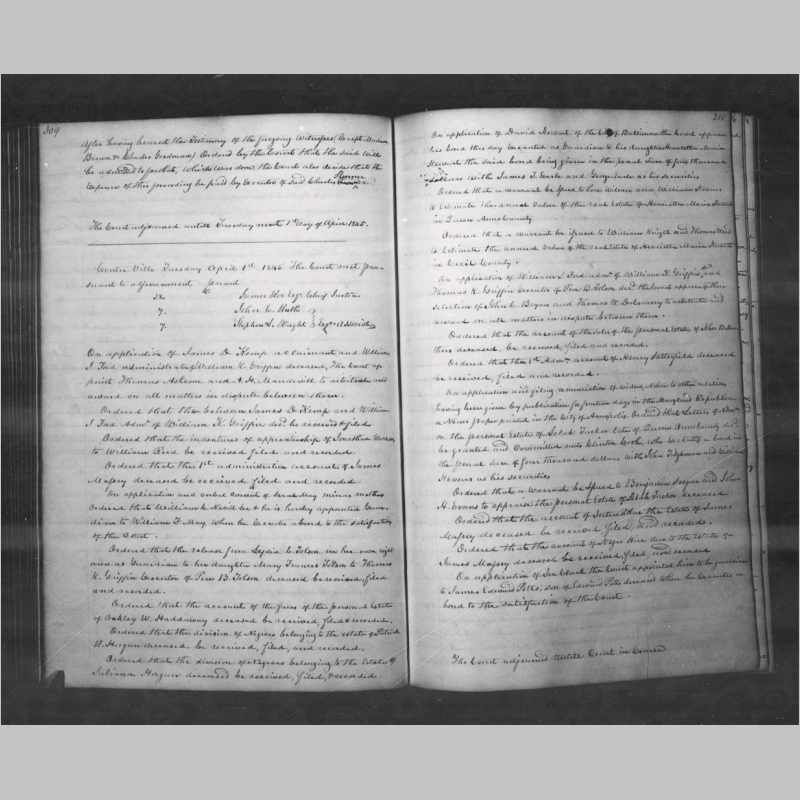 309
After having heard the Testimony of the foregoing Witnesses (except Madison
Brown & Charles Goodman) Ordered by the Court that the said Will
be admitted to probat, which was done the Court also decides that the
expence of this proceeding be paid by Executor of said Charles
The Court adjourned untill Tuesday next 1st day of April 1845.
Centre Ville Tuesday April 1st 1845 The Court met pur-
suant to adjournment present
The
James Esqr Chief Justice
John C.
Stephen J. Wright Esqrs Associates
On application of James D. Kemp a claimant and William
J. administrator of William K. Griffin deceased, The Court ap
point Thomas Askew and A. H. to arbitrate and
award on all matters in dispute between them.
Ordered that the between James D. Kemp and William
J. Admr. of William K. Griffin be received & filed
Ordered that the indentures of apprenticeship of Jonathan
to William Reed be received filed and recorded
Ordered that the 1st administration account of James
Massey deceased be received filed and recorded
On application and verbal consent of Sarah May minor
Ordered that William be & he is hereby appointed Guar-
dian to William F. May when he executes a bond to the satisfaction
of the Court.
Ordered that the release from Lydia E. Tolson in her own right
and as Guardian to her daughter Mary Frances Tolson to Thomas
K. Griffin Executor of Pere B. Tolson deceased be received filed
and recorded.
Ordered that the account of the sales of the personal Estate
of Oakley W. Haddaway deceased be received filed & recorded
Ordered that the division of Negroes belonging to the estate of
H. deceased be received, filed, and recorded
Ordered that the division of Negroes belonging to the Estate of
Juliana deceased be received, filed, & recorded
310
On application of David Stewart of the City of Baltimore the Court approved
his bond this day executed as Guardian to his daughter Henrietta Maria
Stewart the said bond being given in the penal sum of five thousand
dollars with James T. Earle and George as his securities
Ordered that a warrant be issued to and William
to Estimate the annual value of the real estate of Henrietta Maria Stewart
in Queen Anns County
Ordered that a warrant be issued to William Knight and Thomas
to Estimate the annual value of the real estate of Henrietta Maria Stewart
in Cecil County.
On application of William J. admr. of William K. Griffin and
Thomas K. Griffin executor of Pere B. Tolson decd. the Court approve their
selection of John C. Bryan and Thomas to arbitrate and
award on all matters in dispute between them.
Ordered that the account of the sale of the personal estate of John
deceased, be received filed and recorded
Ordered that the 1st Admn. account of Henry Satterfield deceased
be received, filed and recorded.
On application and filing renunciation of widow, Notice to other relations
having been given by publication for fourteen days in the Maryland Republican
a News paper printed in the City of Annapolis Ordered that Letters of Admn.
on the personal Estate of Tucker late of Queen Anns County decd.
be granted and committed unto Clinton Cook, he executing a bond in
the penal sum of four thousand dollars with John Tilghman and
as his securities
Ordered that a Warrant be issued to Benjamin and John
H. Evans to appraise the personal Estate of Tucker deceased
Ordered that the account of the Estate of James
Massey deceased be received filed, and recorded.
Ordered that the account of due to the Estate of
James Massey deceased be received, filed and recorded
On application of the Court appointed him to be guardian
to James Edward Potts, son of Edward Potts deceased when he executes a
bond to the satisfaction of the Court.
The Court adjourned untill Court in Course